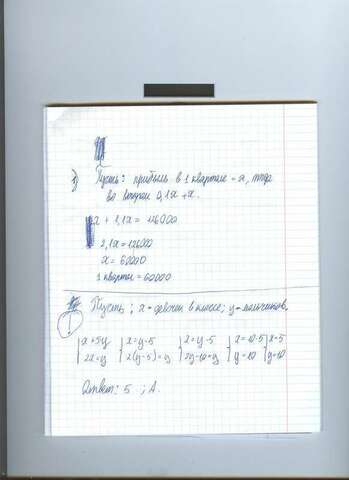 3) Пусть: прибыль в 1 квартале - x, тогда
во втором 0,1x + x.
x + 1,1x = 126000
2,1x = 126000
x = 60000
1 квартал = 60000
1 Пусть: x - девочек в классе; y - мальчиков.
x + 5 y | x = y - 5 | x = y - 5 | x = 10 - 5 | x = 5
2x = y | 2(y - 5) = y | 2y - 10 = y | y = 10 | y = 10
Ответ: 5 ; А.